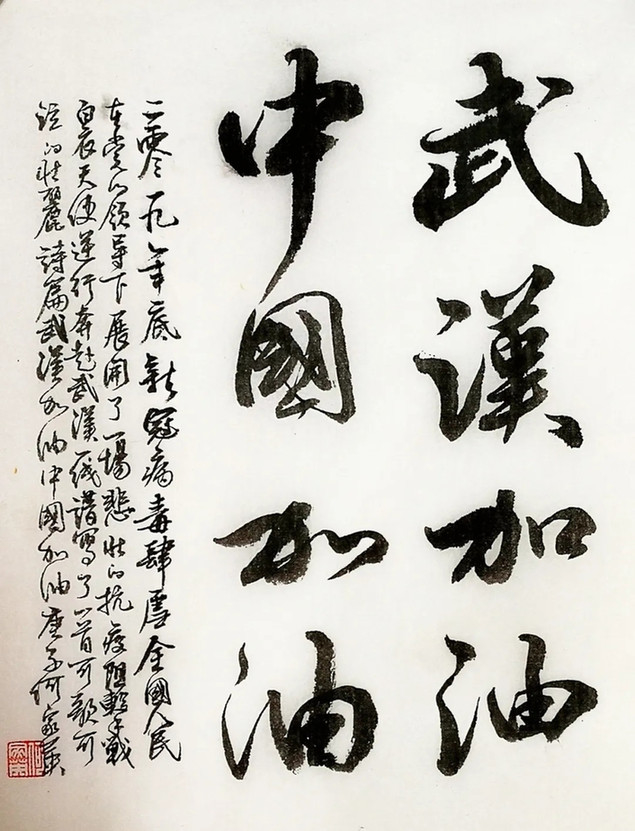 武漢加油
中國加油
二零一九年底新冠病毒肆虐全國人民
在党的领导下展開了一場悲壯的抗疫阻擊战
白衣天使逆行奔赴武漢一线譜寫了一首可歌可
泣的壯麗詩篇武漢加油中國加油庚子何家英